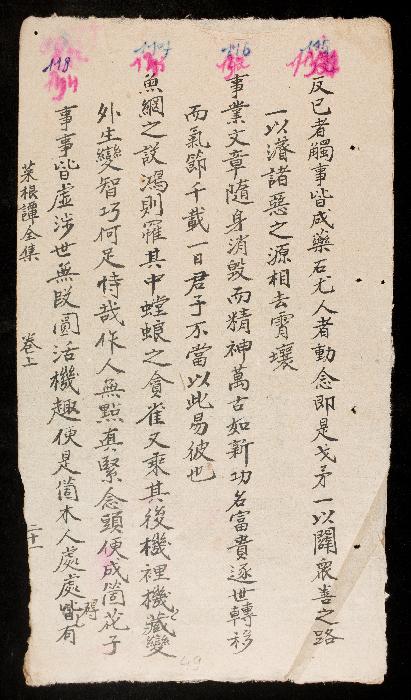 反已者觸事皆成藥石尤人者動念即是戈矛一以闢衆善之路
一以濬諸惡之源相去霄壤
事業文章隨身消毀而精神萬古如新功名富貴逐世轉移
而氣節千載一日君子不當以此易彼也
魚網之設鴻則罹其中螳蜋之貪雀又乘其後機裡機藏變
外生變智巧何足恃哉作人無點真緊念頭便成箇花子
事事皆虛涉世無段圓活機趣便是箇木人處處皆有
碍
菜根譚全集 卷上 二十一
115
116
118
49